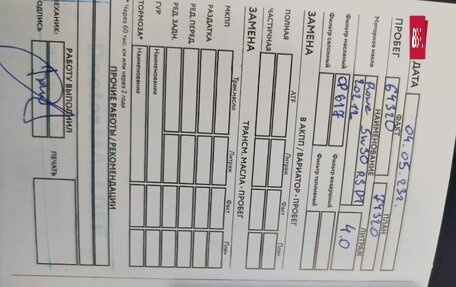 ДАТА 04.05.23г.
ПРОБЕГ ФАКТ ПЛАН
64320
НАИМЕНОВАНИЕ ЛИТРАЖ
Моторное масло Rowe 5w30 RSD1 4.0
20212
Фильтр масляный OP617 Фильтр воздушный
Фильтр салонный Фильтр топливный
ЗАМЕНА В АКПП / ВАРИАТОР - ПРОБЕГ
ATF Литраж Факт План
ПОЛНАЯ
ЧАСТИЧНАЯ
ЗАМЕНА ТРАНСМ. МАСЛА - ПРОБЕГ
Тран.масло Литраж Факт План
МКПП
РАЗДАТКА
РЕД. ПЕРЕД.
РЕД. ЗАДН.
ГУР Наименование
ТОРМОЗА* Наименование
* Через 60 тыс. км или через 2 года
ПРОЧИЕ РАБОТЫ / РЕКОМЕНДАЦИИ
РАБОТУ ВЫПОЛНИЛ ПЕЧАТЬ
МЕХАНИК:
ПОДПИСЬ